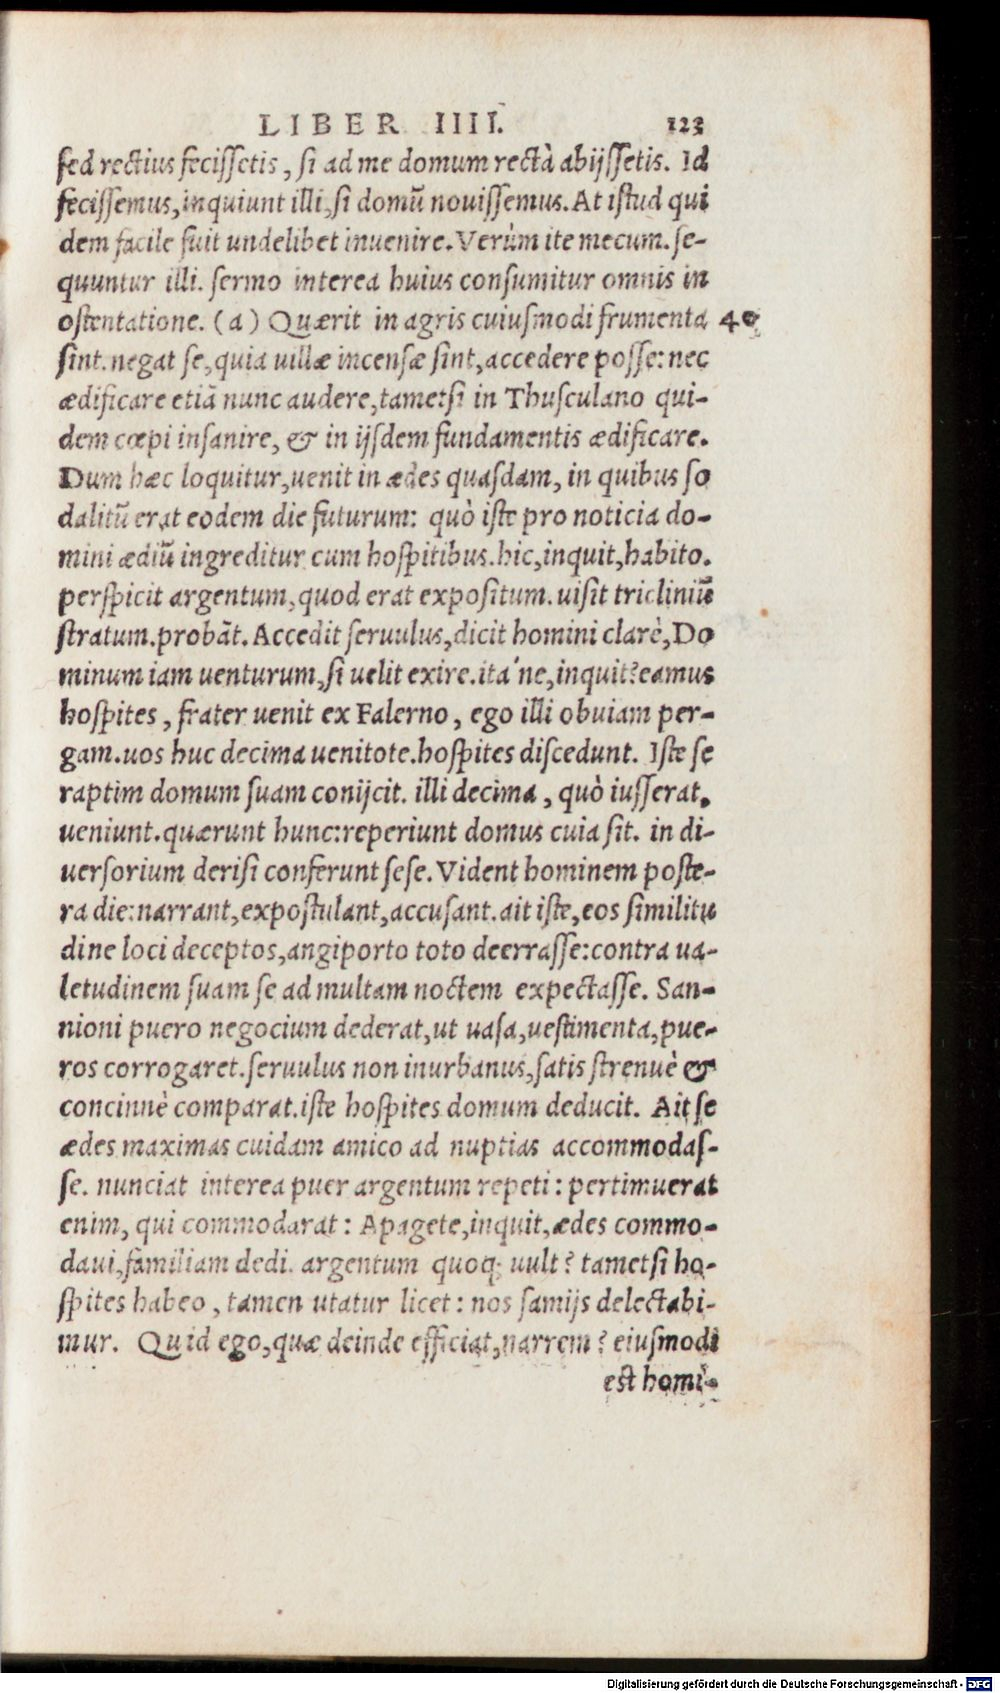 LIBER IIII. 123
sed rectius fecissetis, si ad me domum rectà abijssetis. Id
fecissemus, inquiunt illi, si domũ nouissemus. At istud qui
dem facile fuit undelibet inuenire. Verùm ite mecum. se-
quuntur illi. sermo interea huius consumitur omnis in
ostentatione. (a) Quærit in agris cuiusmodi frumenta 40
sint. negat se, quia uillæ incensæ sint, accedere posse: nec
ædificare etiã nunc audere, tametsi in Thusculano qui-
dem cœpi insanire, & in ijsdem fundamentis ædificare.
Dum hæc loquitur, uenit in ædes quasdam, in quibus so
dalitũ erat eodem die futurum: quò iste pro noticia do-
mini ædiũ ingreditur cum hospitibus. hic, inquit, habito.
perspicit argentum, quod erat expositum. uisit tricliniũ
stratum. probãt. Accedit seruulus, dicit homini clarè, Do
minum iam uenturum, si uelit exire. ita'ne, inquit? eamus
hospites, frater uenit ex Falerno, ego illi obuiam per-
gam. uos huc decima uenitote. hospites discedunt. Iste se
raptim domum suam conijcit. illi decima, quò iusserat,
ueniunt. quærunt hunc: reperiunt domus cuia sit. in di-
uersorium derisi conferunt sese. Vident hominem poste-
ra die: narrant, expostulant, accusant. ait iste, eos similitu
dine loci deceptos, angiporto toto deerrasse: contra ua-
letudinem suam se ad multam noctem expectasse. San-
nioni puero negocium dederat, ut uasa, uestimenta, pue-
ros corrogaret. seruulus non inurbanus, satis strenuè &
concinnè comparat. iste hospites domum deducit. Ait se
ædes maximas cuidam amico ad nuptias accommodas-
se. nunciat interea puer argentum repeti: pertimuerat
enim, qui commodarat: Apagete, inquit, ædes commo-
daui, familiam dedi. argentum quoq; uult? tametsi ho-
spites habeo, tamen utatur licet: nos samijs delectabi-
mur. Quid ego, quæ deinde efficiat, narrem? eiusmodi
est homi-
Digitalisierung gefördert durch die Deutsche Forschungsgemeinschaft - DFG